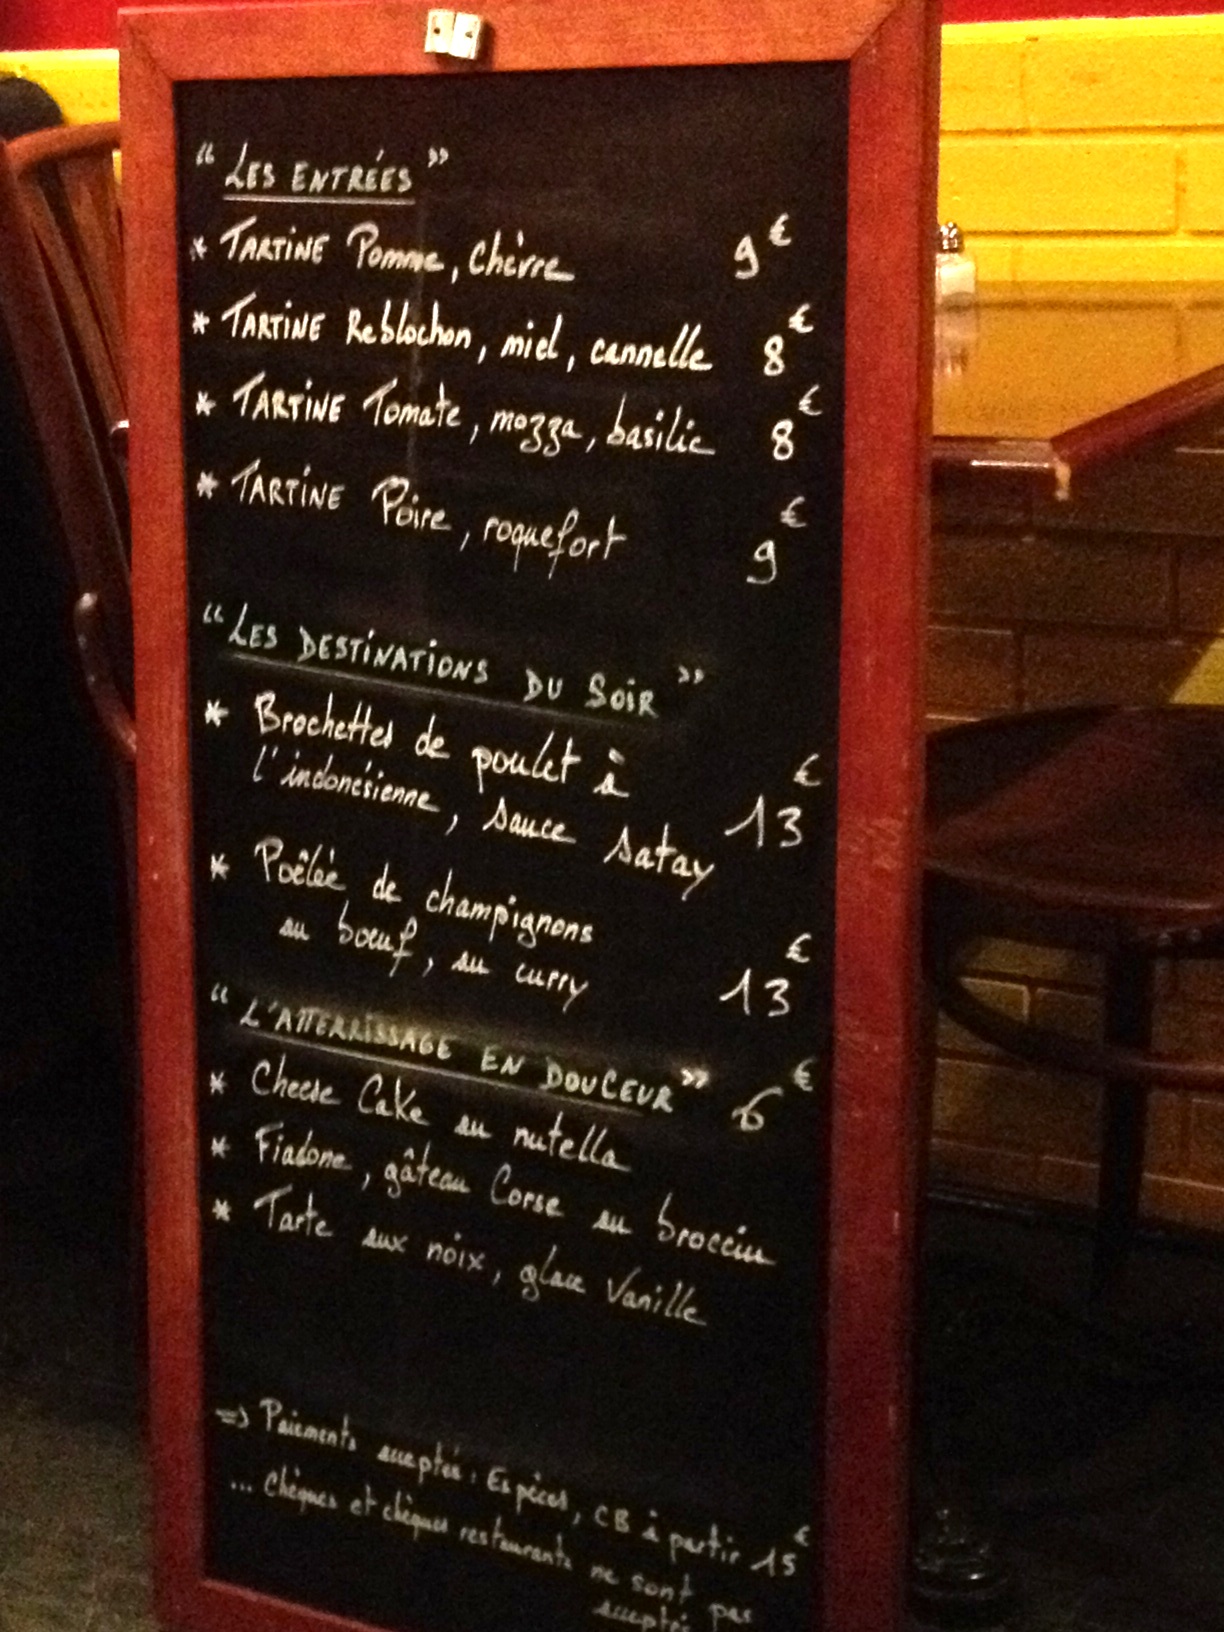 “ LES ENTRÉES ”
* TARTINE Pomme, Chèvre 9€
* TARTINE Reblochon, miel, cannelle 8€
* TARTINE Tomate, mozza, basilic 8€
* TARTINE Poire, roquefort 9€
“ LES DESTINATIONS DU SOIR ”
* Brochettes de poulet à
l'indonésienne, sauce satay 13€
* Poêlée de champignons
au bœuf, au curry 13€
“ L'ATTERRISSAGE EN DOUCEUR ” 6€
* Cheese Cake au nutella
* Fiadone, gâteau Corse au brocciu
* Tarte aux noix, glace Vanille
=> Paiements acceptés : Espèces, CB à partir 15€
... Chèques et chèques restaurants ne sont pas
acceptés